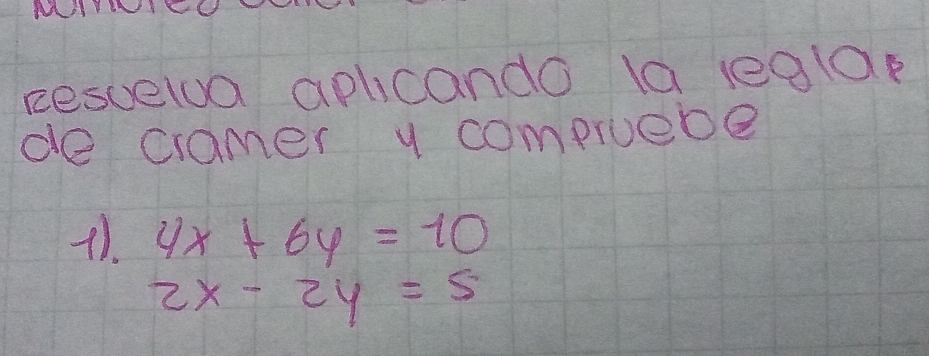 resuelva aplicando la regla
de cramer y compruebe
1). 4x + 6y = 10
2x - 2y = 5